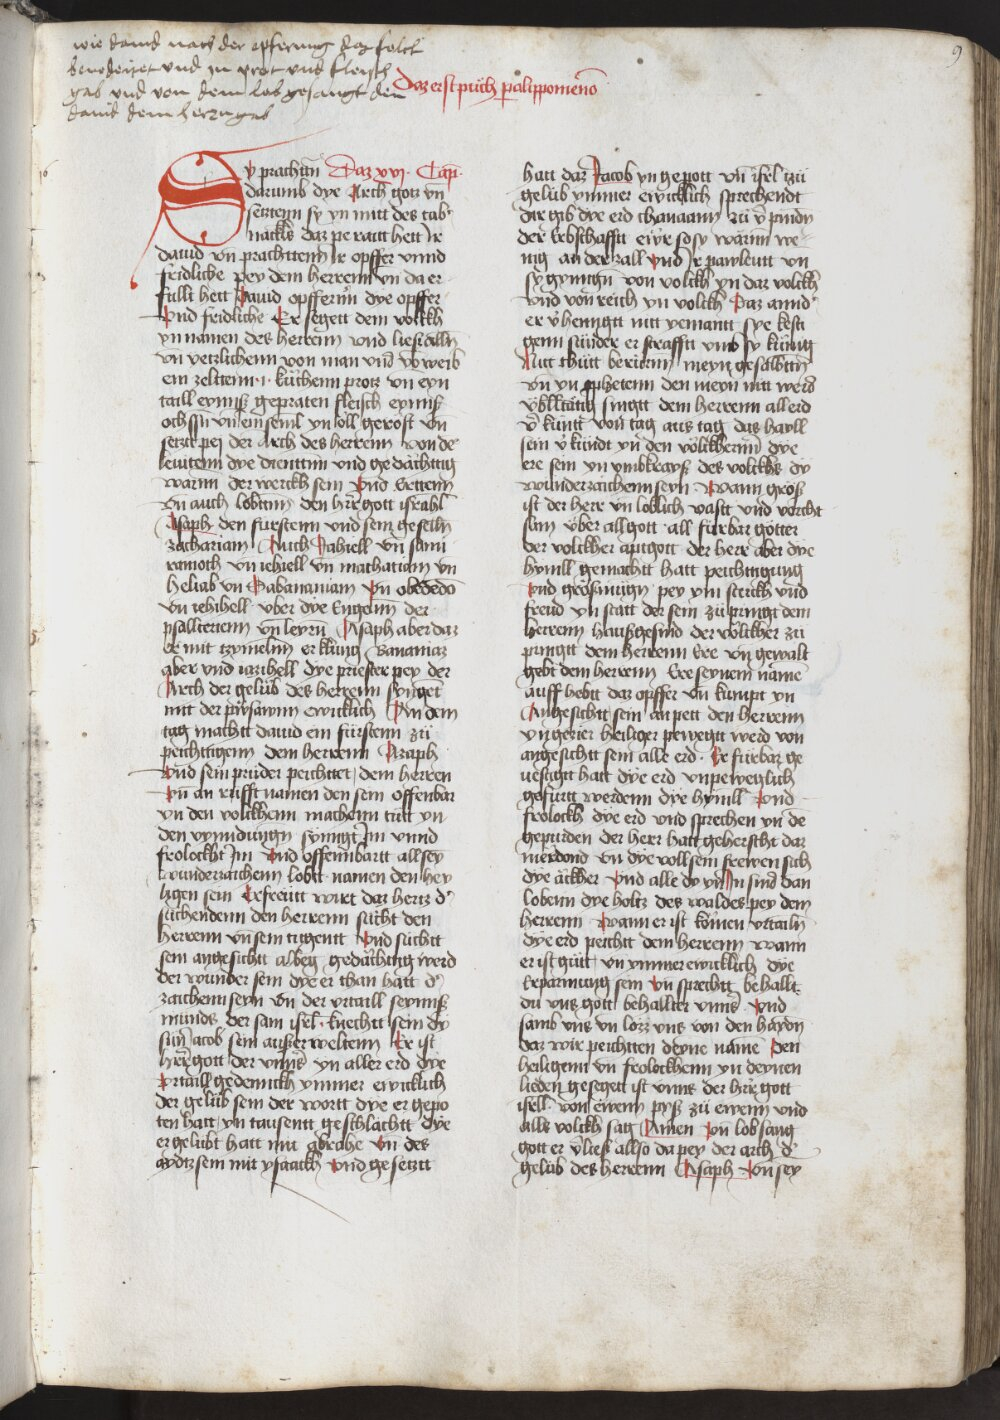 wie dauid nach der opferung daz folck
benedeitet und in prot und fleisch
gab und von dem lobgesangk den
dauid dem herrn gab
9
Daz erst puch paralippomenō
Sy prachtn̄ Daz xvi. Cap.
darumb dye Arch gotz vn̄
setztenn sy yn mitt des tab
nackls daz pe raitt hett Ir
dauid vn̄ prachttenn Ir opffer vnnd
fridliche pey dem herrenn vn̄ da er
fullt hett Dauid opfferūn dye opffer
Vnd fridliche Er segett dem volckh
yn namen des herrenn vnd liess alln̄
vn̄ yetzlichenn von man vnd vō weib
ein zelttenn i kuchenn protz vn̄ eyn
taill eyniss gepraten fleisch eyniss
ochssn̄ vn̄ ein seml yn soll gerost vn̄
setzt pey der Arch des herrenn von de
leuitenn dye dienttnn vnd gedächttig
warnn der werckh sein Vnd Eretten
vn̄ auch lobtnn den hr̄re gott israhl
Asaph den furstenn vnd sein geselln̄
zachariam Auch Jahiell vn̄ sami
ramoth vn̄ iehiell vn̄ mathatiam vn̄
heliab vn̄ Babananiam Vn̄ obededō
vn̄ iehihell vber dye Engolnn der
psallterienn vn̄ leyrn̄ Asaph aber daz
er mitt tzymelnn erklung Bananiaz
aber vnd iazihell dye priester pey der
Arch der gelub des herrenn synget
mit der pusawnn ewicklich An dem
tag machtt dauid ein furstenn zu
peichttigenn dem herrenn Azaph
Vnd sein pruder peichttet dem herren
Vn̄ an rufft namen den sein offenbar
vn̄ den volckhenn machenn tutt yn
den vymidungn̄ synngt Im vnnd
frolockht Im Vnd offennbartt all sey
wunderzaichenn lobtt namen den hey
ligen sein Erfreutt wirt daz hertz d
suchendenn den herrenn sucht den
herrenn vn̄ sein tugentt Vnd suchtt
sein angesichtt albeg gedächttig werd
der wunder sein dye er than hatt d
zaichenn seyn vn̄ der vrtaill seyniss
munds der sam isrl. knechtt sein dy
sun̄ Jacob sein ausser weltenn Er ist
herr gott der vnns̄ yn aller erd dye
Vrtaill gedennckh ymmer ewicklich
der gelub sein der wortt dye er gepo
ten hatt yn tausentt geschlächtt dye
er gelubt hatt mit abrahe Vn̄ des
aydtz sem mit ysaackh Vnd gesetztt
hatt daz Jacob yn gepott vn̄ isrl zu
gelub ymmer ewicklich sprechendt
dir gib dye erd chanaann zu v̄ pindn̄
der Erbschafftt ewr so sy warnn we
nig an der zall Vnd Ir pawleutt vn̄
sy gyngn̄ von volckh yn daz volckh
vnd von reich yn volckh Daz annd
er v̄henngtt nitt yemantt sye kesti
genn sunder er strafftt vmb sy kunig
Nitt thutt berurnn meyn gesalbttn̄
vn̄ yn prophetenn den meyn nitt werd
v̄bltätig singtt dem herrenn all erd
v̄kuntt von tag aus tag das hayll
sein v̄kundt yn den volkhernn dye
ere sein yn vmbkrayss des volckhs dy
wunderzaichenn seyn Wann gross
ist der herr vn̄ loblich vastt vnd vorcht
sam vber all gott all furbar gotter
der volckher aptgott der herr aber dye
hymll gemachtt hatt peichttigung
Vnd grossmugn̄ pey ym sterckh vnd
freud yn statt der sein zu pringt dem
herrenn haussgesind der volckher zu
pringtt dem herrenn Ere vn̄ gewalt
gebt dem herrenn Ere seynem namē
auff hebtt daz opffer vn̄ kumpt yn
Angesichtt sein an pett den herrenn
yn gezier heiliger pewegtt werd von
angesichtt sem alle erd. Er furbaz ge
uestigtt hatt dye erd vnpeweglich
gefurtt werdenn dye hymll Vnd
frolockh dye erd vnd sprechen yn de
gepurden der herr hatt geherscht daz
mer dond vn̄ dye voll sem frewen sich
dye äckher Vnd alle dy yn In sind dan
lobenn dye holtz des waldes pey dem
herrenn Wann er ist komen vrtailn̄
dye erd peichtt dem herrenn wann
er ist gutt vn̄ ymmer ewicklich dye
Erparmung sem Vn̄ sprechtt behallt
du vns gott behallter vnns̄ Vnd
samb vns vn̄ lozz vns von den haydn̄
daz wir peichtten deyne namē Den
heiligenn vn̄ frolockhenn yn deynen
lieden gesegett ist vnns der hr̄re gott
isrll von ewenn pyss zu ewenn vnd
alls volckh sag Amen Vn̄ lobsang
gott er v̄liess allso da pey der arch d
gelub des herrenn Asaph Vn̄ sey